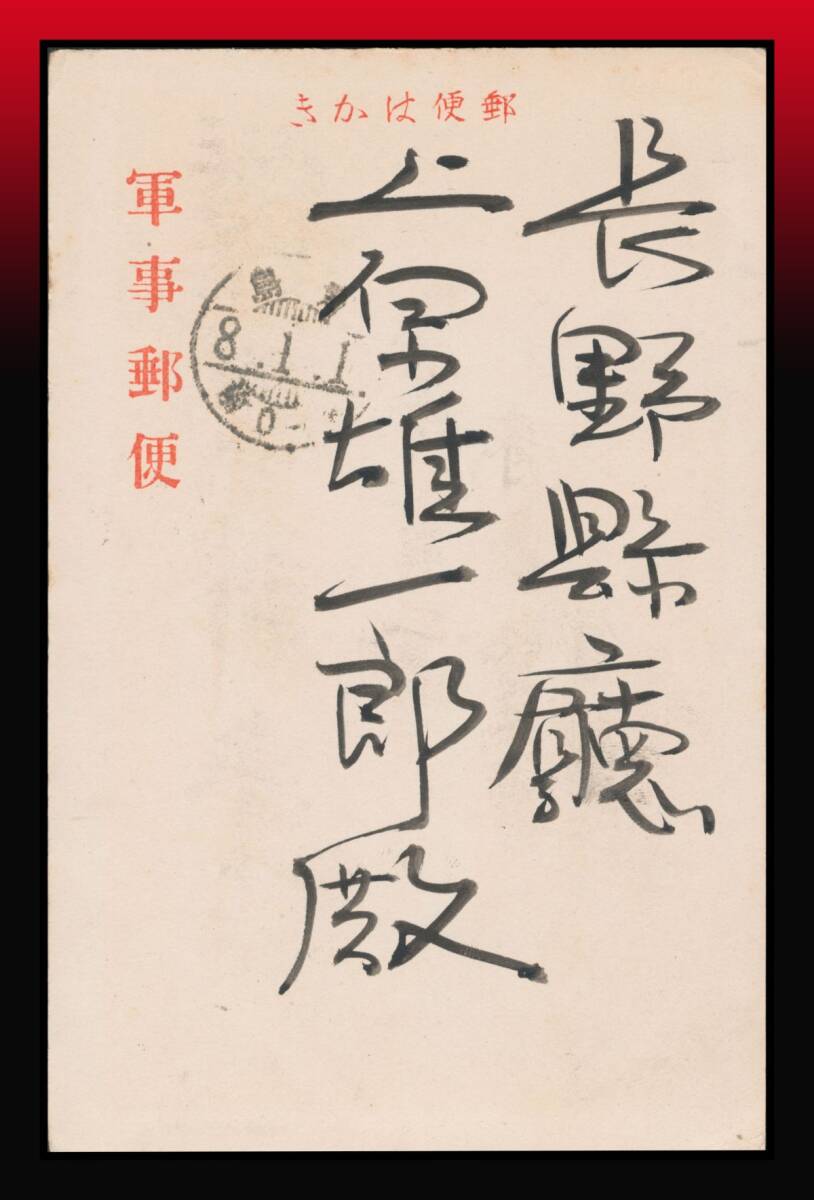 郵便はかき
軍事郵便
8.1.1
長野縣廳
上保雄一郎殿